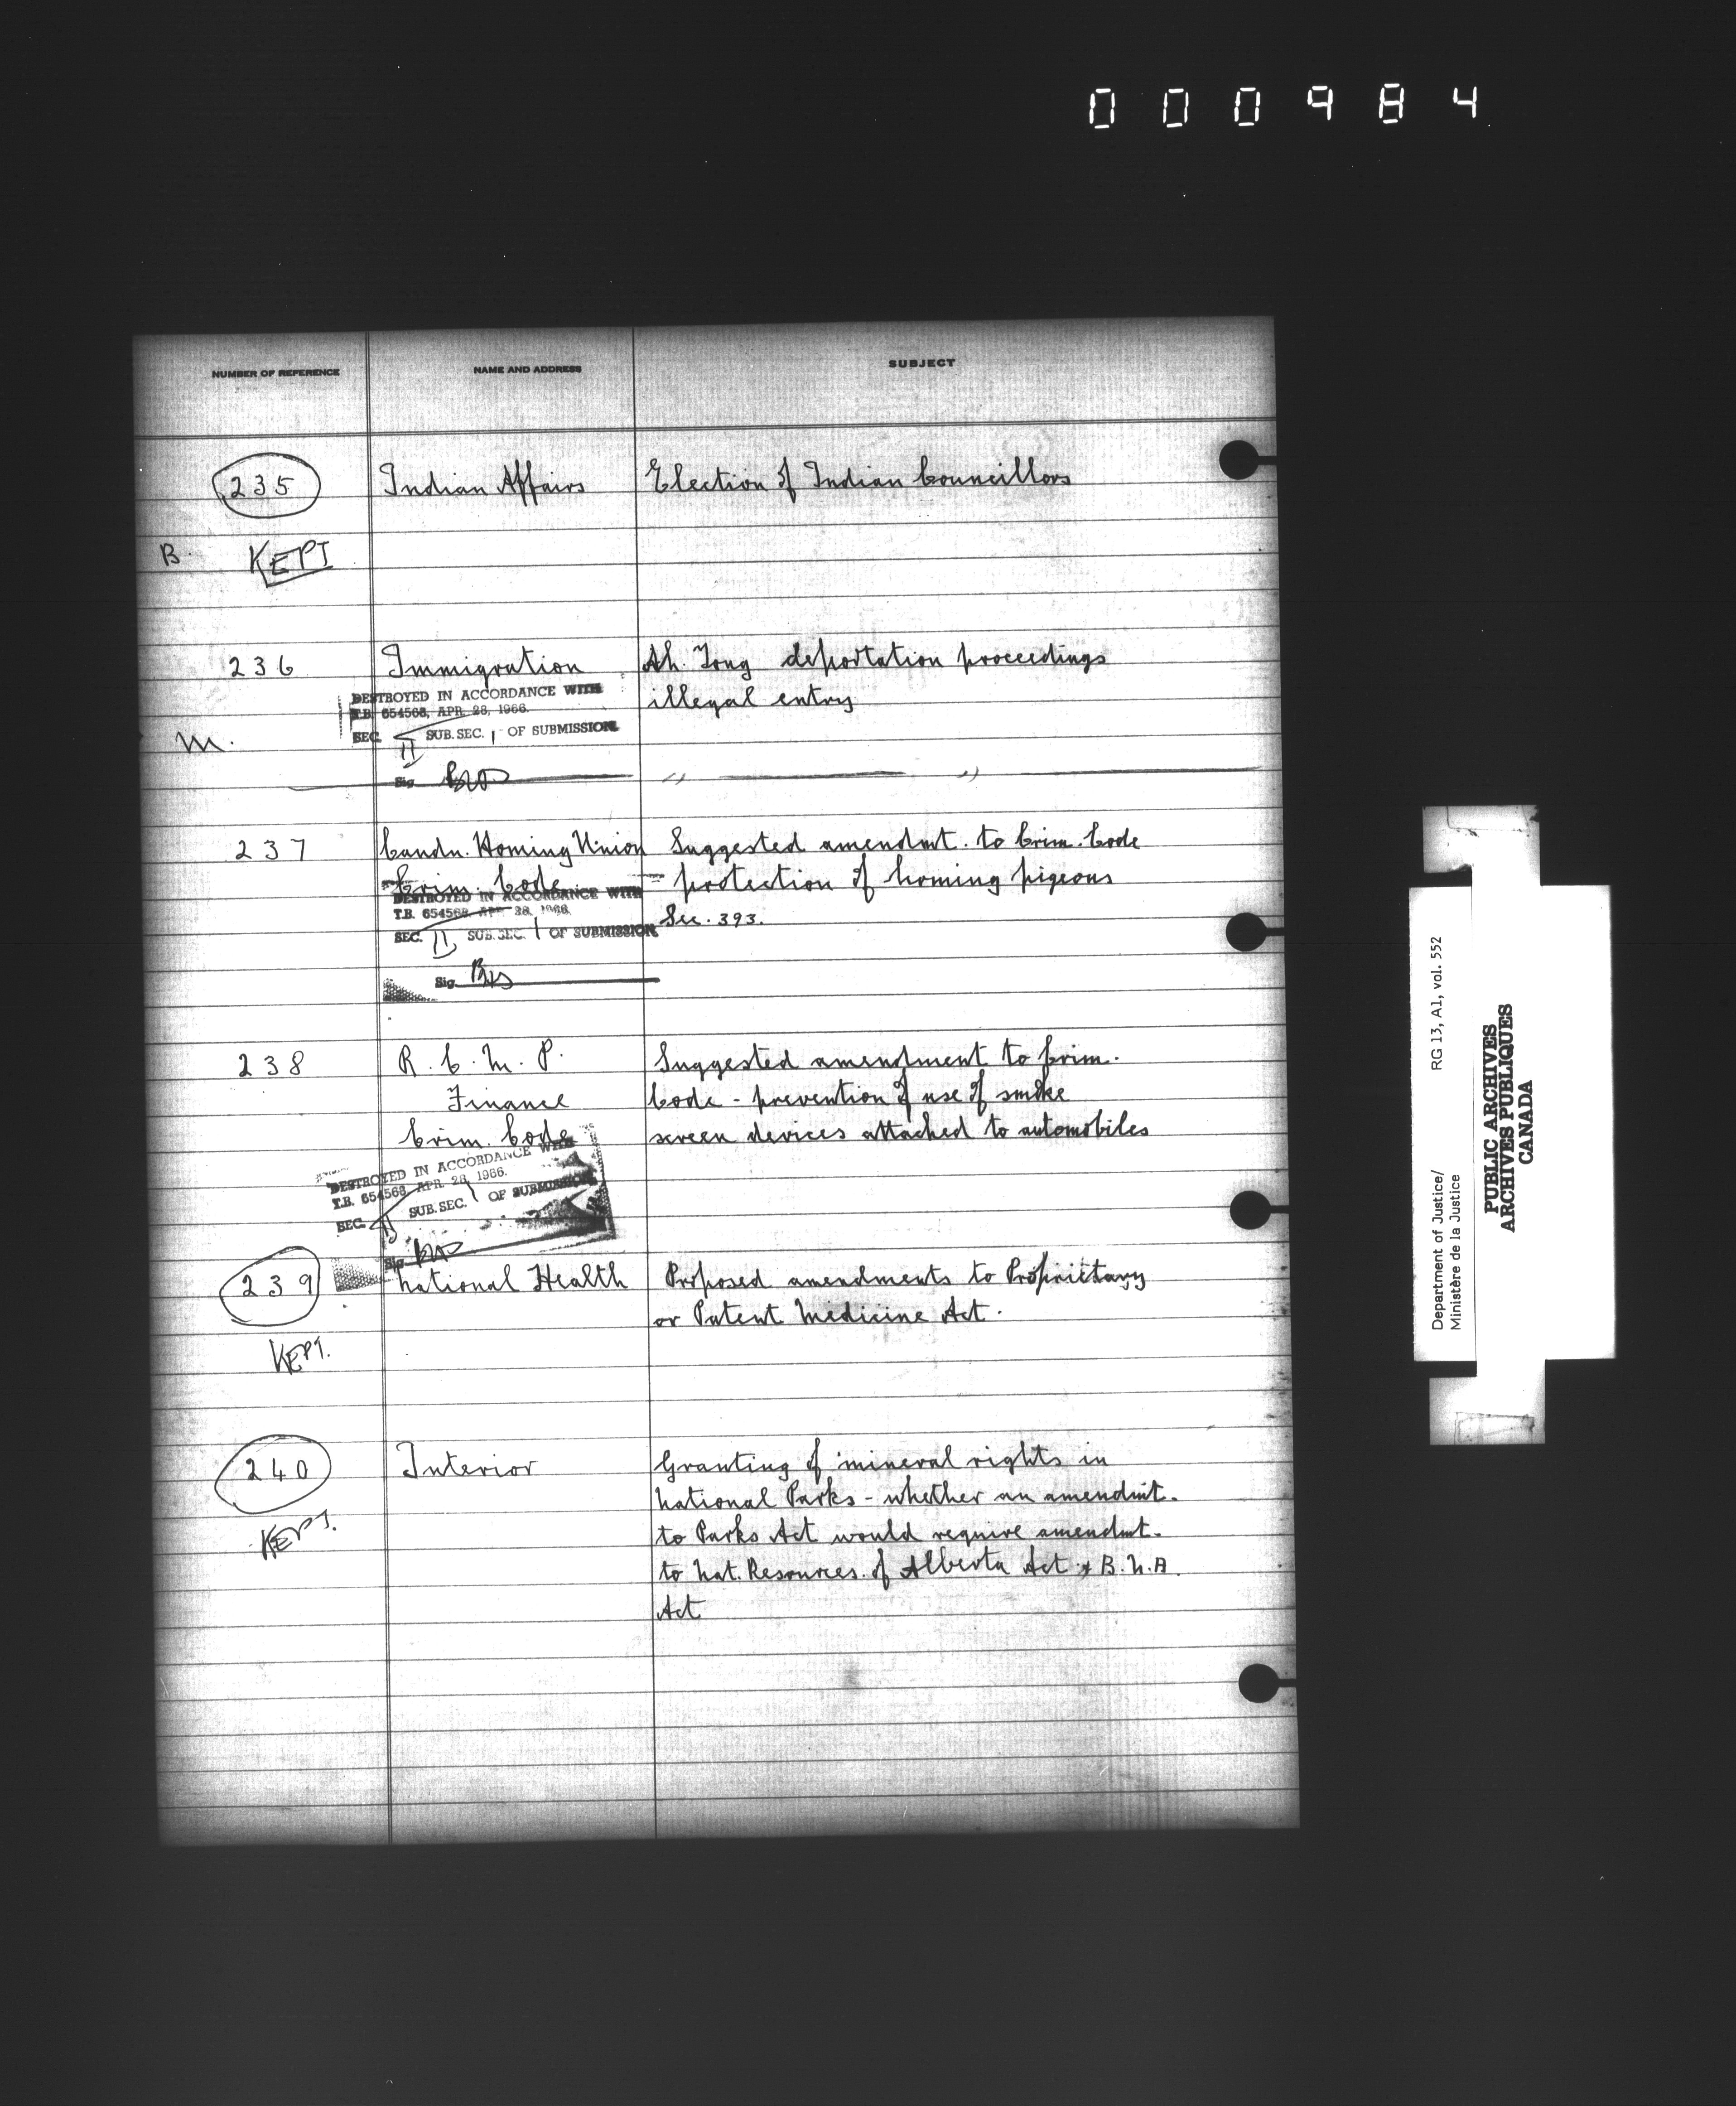 000984
NUMBER OF REFERENCE NAME AND ADDRESS SUBJECT
235 Indian Affairs Election of Indian Councillors
B. KEPT
236 Immigration Ah. Tong deportation proceedings
illegal entry
DESTROYED IN ACCORDANCE WITH
T.B. 654568, APR. 28, 1966.
SEC. II SUB. SEC. 1 OF SUBMISSION
M.
Sig.
" "
237 Candn. Homing Union Suggested amendmt. to Crim. Code
Crim. Code - protection of homing pigeons
Sec. 393.
DESTROYED IN ACCORDANCE WITH
T.B. 654568 APR 28, 1966.
SEC. II SUB. SEC. 1 OF SUBMISSION
Sig.
238 R. C. M. P. Suggested amendment to Crim.
Finance Code - prevention of use of smoke
Crim. Code screen devices attached to automobiles
DESTROYED IN ACCORDANCE WITH
T.B. 654568, APR. 28, 1966.
SEC. II SUB. SEC. 1 OF SUBMISSION
Sig.
239 National Health Proposed amendments to Proprietary
or Patent Medicine Act.
KEPT.
240 Interior Granting of mineral rights in
National Parks - whether an amendmt.
KEPT. to Parks Act would require amendmt.
to Nat. Resources of Alberta Act & B.N.A.
Act
Department of Justice/ RG 13, A1, vol. 552
Ministère de la Justice
PUBLIC ARCHIVES
ARCHIVES PUBLIQUES
CANADA